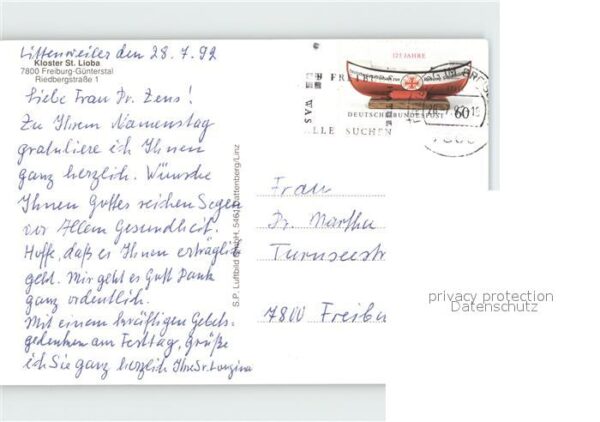 Littenweiler den 28.7.92
Kloster St. Lioba
7800 Freiburg-Günterstal
Riedbergstraße 1
Liebe Frau Dr. Zens!
Zu Ihrem Namenstag
gratuliere ich Ihnen
ganz herzlich. Wünsche
Ihnen Gottes reichen Segen
vor Allem Gesundheit.
Hoffe, daß es Ihnen erträglich
geht. Mir geht es Gott Dank
ganz ordentlich.
Mit einem kräftigen Gebets-
gedenken am Festtag, grüße
ich Sie ganz herzlich Ihre Sr.
S.P. Luftbild GmbH, 5462 /Linz
125 JAHRE
DEUTSCHE BUNDESPOST 60
WAS
LLE SUCHEN
Frau
Dr. Martha
Turnseestr
7800 Freibu
privacy protection
Datenschutz